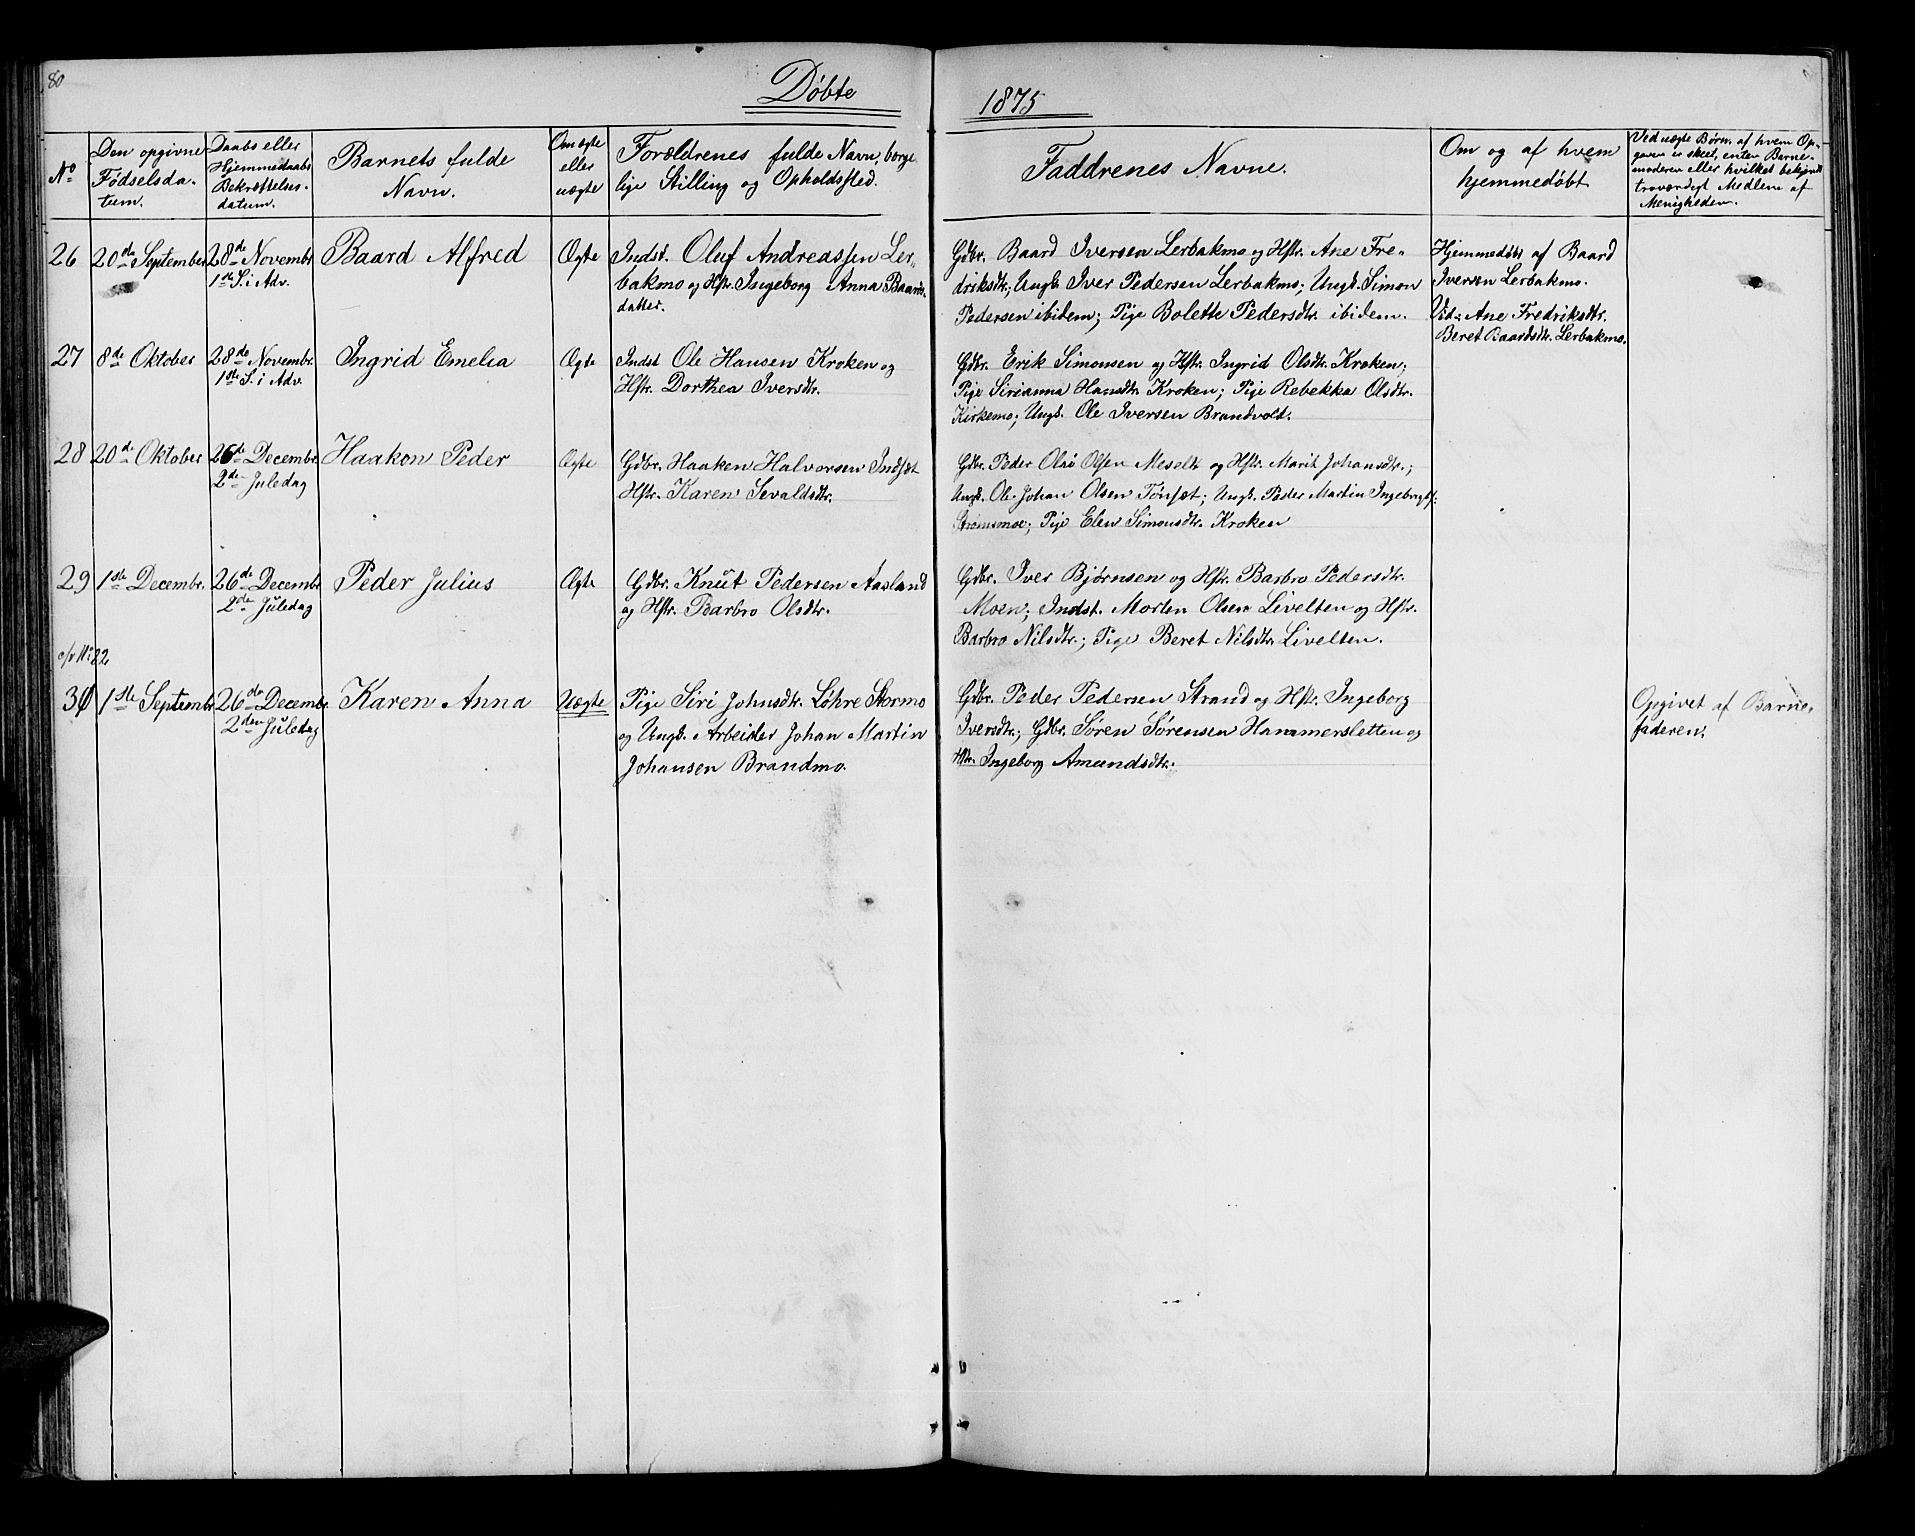 80
Døbte
1875
No
Den opgivne
Fødselsda-
tum.
Daabs eller
Hjemmedaabs
Bekræftelses-
datum.
Barnets fulde
Navn.
Om ægte
eller
uægte
Forældrenes fulde Navn, borge
lige Stilling og Opholdssted.
Faddrenes Navne.
Om og af hvem
hjemmedøbt
Ved uægte Børn, af hvem Op-
gaven er skeet, enten Barne-
moderen eller hvilket bekjendt
troværdigt Medlem af
Menigheden.
26
20de September
28de Novembr
1ste S. i Adv.
Baard Alfred
Ægte
Indst. Oluf Andreassen Ler-
bakmo og Hstr. Ingeborg Anna Baards-
datter.
Gdbr. Baard Iversen Lerbakmo og Hstr. Ane Fre-
driksdtr; Ungk. Iver Pedersen Lerbakmo; Ungk. Simon
Pedersen ibidem; Pige Bolette Pedersdtr. ibidem.
Hjemmedøbt af Baard
Iversen Lerbakmo.
Vid: Ane Fredriksdtr.
Beret Baardsdtr. Lerbakmo.
27
8de Oktober
28de Novembr.
1ste S. i Adv.
Ingrid Emelia
Ægte
Indst Ole Hansen Kroken og
Hstr. Dorthea Iversdtr.
Gdbr. Erik Simonsen og Hstr. Ingrid Olsdtr. Kroken;
Pige Sirianna Hansdtr. Kroken; Pige Rebekka Olsdtr.
Kirkemo; Ungk. Ole Iversen Brandvold.
28
20de Oktober
26de Decembr.
2de Juledag
Haakon Peder
Ægte
Gdbr. Haaken Halvorsen Indset
Hstr. Karen Sevaldsdtr.
Gdbr. Peder Olsen Meselt og Hstr. Marit Johansdtr.;
Ungk. Ole Johan Olsen Tønset; Ungk. Peder Martin Ingebrigts.
Strømsmoe; Pige Elen Simonsdtr. Kroken
29
1ste Decembr.
26de Decembr
2de Juledag
Peder Julius
Ægte
Gdbr. Knut Pedersen Aasland
og Hstr. Barbro Olsdtr.
Gdbr. Iver Bjørnsen og Hstr. Barbro Pedersdtr.
Moen; Indst. Morten Olsen Livelten og Hstr.
Barbro Nilsdtr.; Pige Beret Nilsdtr. Livelten.
30
1ste Septembr.
26de Decembr.
2den Juledag
Karen Anna
Uægte
Pige Siri Johnsdtr. Løhre Stormo
og Ungk. Arbeider Johan Martin
Johansen Brandmo.
Gdbr. Peder Pedersen Strand og Hstr. Ingeborg
Iversdtr.; Gdbr. Søren Sørensen Hammersletten og
Hstr. Ingeborg Amundsdtr.
Opgivet af Barne-
faderen.